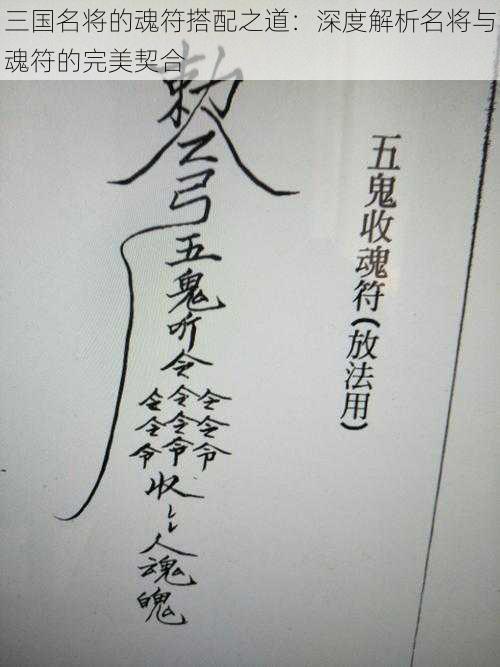 三国名将的魂符搭配之道：深度解析名将与
魂符的完美契合
五鬼收魂符(放法用)
勅
弓
五鬼听
令
令令令
令令令
令令令
收
人魂魄